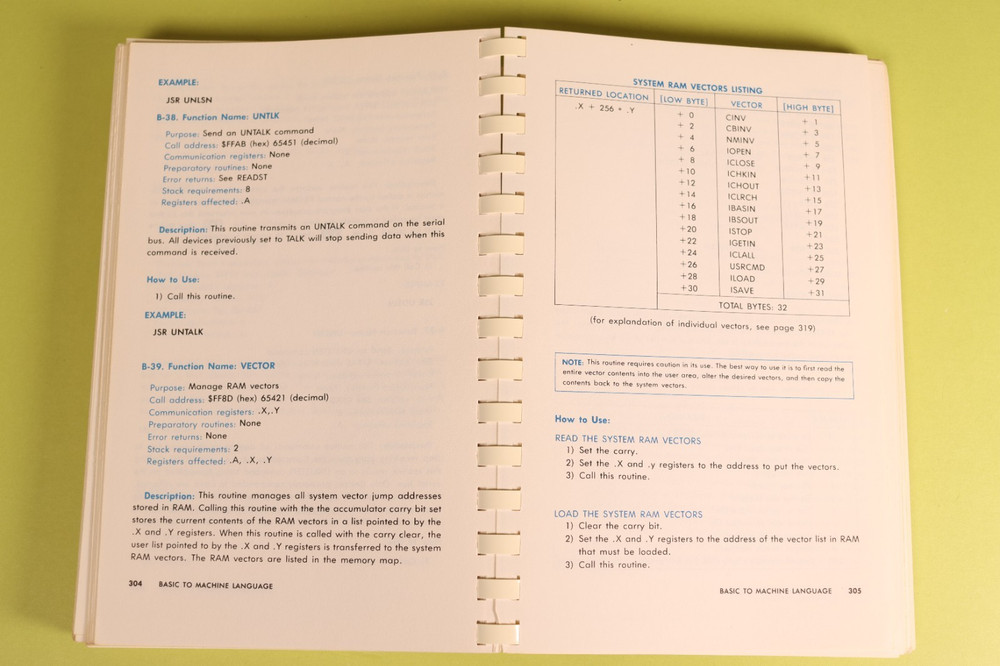 EXAMPLE:
JSR UNLSN
B-38. Function Name: UNTLK
Purpose: Send an UNTALK command
Call address: $FFAB (hex) 65451 (decimal)
Communication registers: None
Preparatory routines: None
Error returns: See READST
Stack requirements: 8
Registers affected: .A
Description: This routine transmits an UNTALK command on the serial
bus. All devices previously set to TALK will stop sending data when this
command is received.
How to Use:
1) Call this routine.
EXAMPLE:
JSR UNTALK
B-39. Function Name: VECTOR
Purpose: Manage RAM vectors
Call address: $FF8D (hex) 65421 (decimal)
Communication registers: .X,.Y
Preparatory routines: None
Error returns: None
Stack requirements: 2
Registers affected: .A, .X, .Y
Description: This routine manages all system vector jump addresses
stored in RAM. Calling this routine with the the accumulator carry bit set
stores the current contents of the RAM vectors in a list pointed to by the
.X and .Y registers. When this routine is called with the carry clear, the
user list pointed to by the .X and .Y registers is transferred to the system
RAM vectors. The RAM vectors are listed in the memory map.
304 BASIC TO MACHINE LANGUAGE
SYSTEM RAM VECTORS LISTING
RETURNED LOCATION [LOW BYTE] VECTOR [HIGH BYTE]
.X + 256 * .Y + 0 CINV + 1
+ 2 CBINV + 3
+ 4 NMINV + 5
+ 6 IOPEN + 7
+ 8 ICLOSE + 9
+10 ICHKIN +11
+12 ICHOUT +13
+14 ICLRCH +15
+16 IBASIN +17
+18 IBSOUT +19
+20 ISTOP +21
+22 IGETIN +23
+24 ICLALL +25
+26 USRCMD +27
+28 ILOAD +29
+30 ISAVE +31
TOTAL BYTES: 32
(for explandation of individual vectors, see page 319)
NOTE: This routine requires caution in its use. The best way to use it is to first read the
entire vector contents into the user area, alter the desired vectors, and then copy the
contents back to the system vectors.
How to Use:
READ THE SYSTEM RAM VECTORS
1) Set the carry.
2) Set the .X and .y registers to the address to put the vectors.
3) Call this routine.
LOAD THE SYSTEM RAM VECTORS
1) Clear the carry bit.
2) Set the .X and .Y registers to the address of the vector list in RAM
that must be loaded.
3) Call this routine.
BASIC TO MACHINE LANGUAGE 305